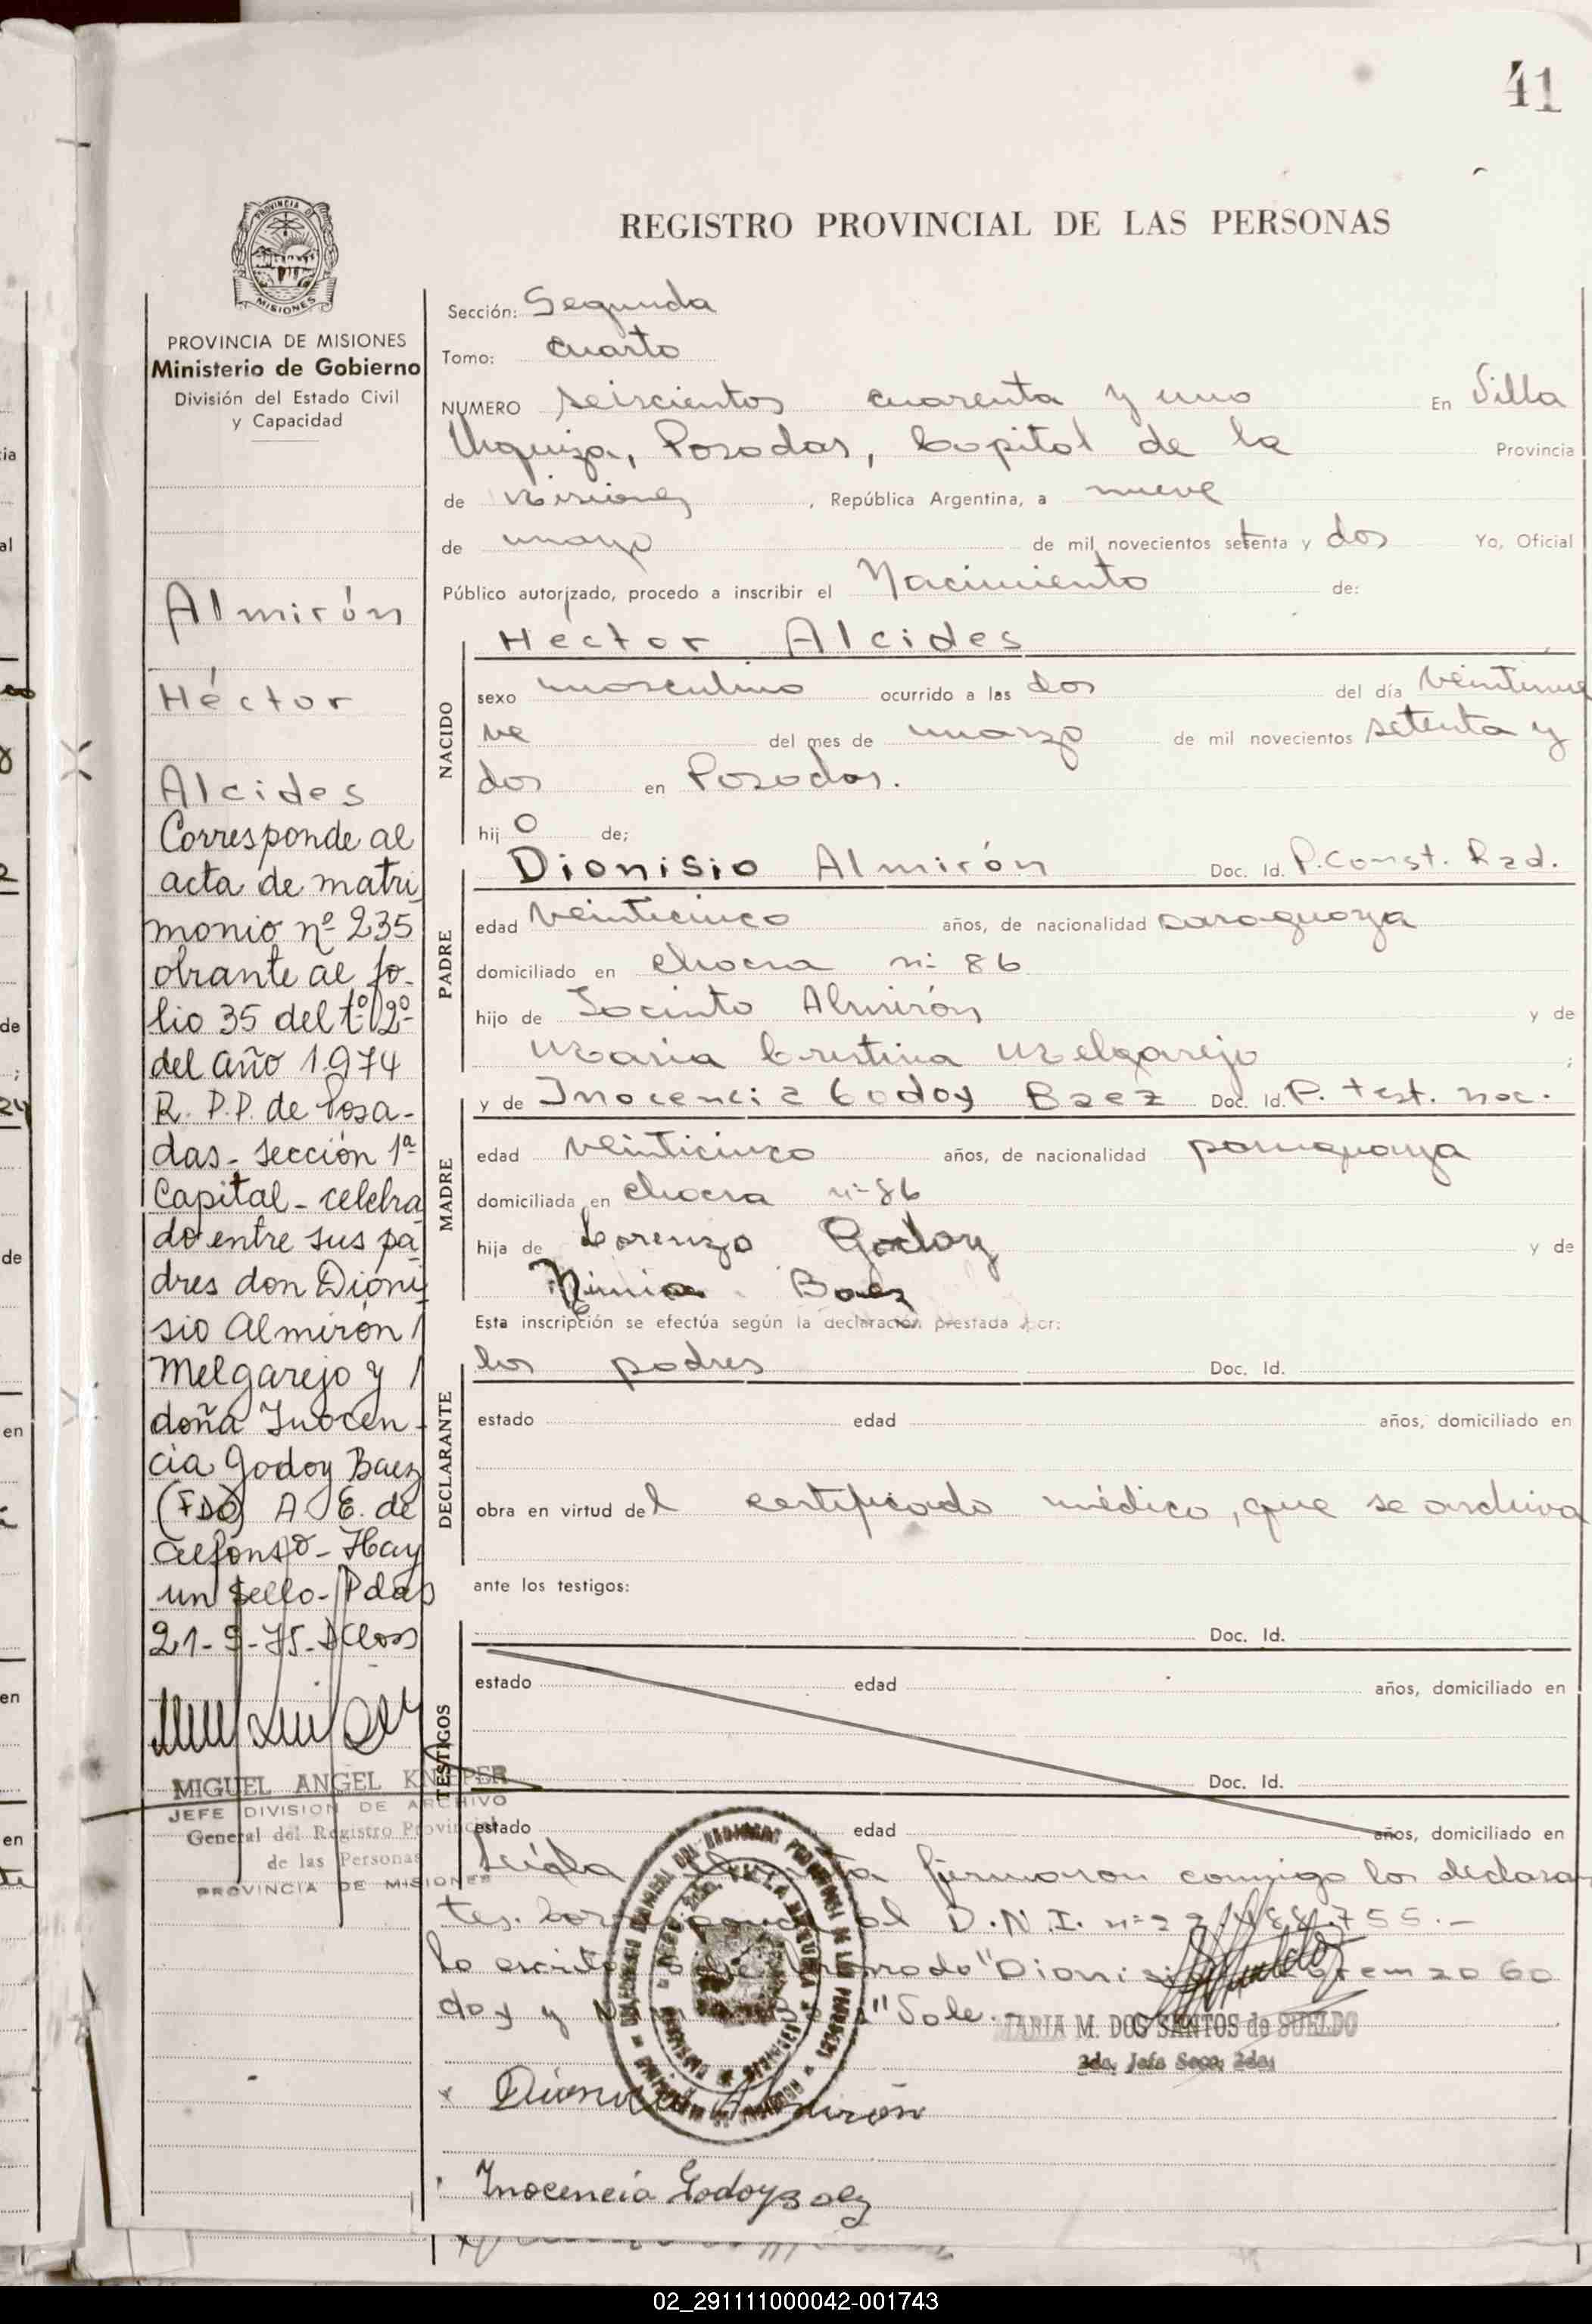 41
REGISTRO PROVINCIAL DE LAS PERSONAS
PROVINCIA DE MISIONES
Ministerio de Gobierno
División del Estado Civil
y Capacidad
Almirón
Héctor
Alcides
Corresponde al
acta de matri
monio nº 235
obrante al fo-
lio 35 del tº 2º
del año 1974
R. P.P. de Posa-
das - Sección 1ª
Capital - celebra
do entre sus pa
dres don Dioni
sio Almirón
Melgarejo y
doña Inocen-
cia Godoy Baez
(FDO) A E. de
Alfonso - Hay
un sello - Pdas
21-9-75-
MIGUEL ANGEL KNIPPER
JEFE DIVISION DE ARCHIVO
General del Registro Provincial
de las Personas
PROVINCIA DE MISIONES
Sección: Segunda
Tomo: cuarto
NUMERO seiscientos cuarenta y uno En Villa
Urquiza, Posadas, Capital de la Provincia
de Misiones, República Argentina, a nueve
de mayo de mil novecientos setenta y dos Yo, Oficial
Público autorizado, procedo a inscribir el Nacimiento de:
NACIDO
Héctor Alcides
sexo masculino ocurrido a las dos del día veintinue
ve del mes de marzo de mil novecientos setenta y
dos en Posadas.
hijo de;
PADRE
Dionisio Almirón Doc. Id. P. Const. Rad.
edad veinticinco años, de nacionalidad paraguaya
domiciliado en chacra nº 86
hijo de Jacinto Almirón y de
María Cristina Melgarejo ;
MADRE
y de Inocencia Godoy Baez Doc. Id. P. test. nac.
edad veinticinco años, de nacionalidad paraguaya
domiciliada en chacra nº 86
hija de Lorenzo Godoy y de
Baez
Esta inscripción se efectúa según la declaración prestada por:
DECLARANTE
los padres Doc. Id.
estado edad años, domiciliado en
obra en virtud del certificado médico, que se archiva
ante los testigos:
TESTIGOS
Doc. Id.
estado edad años, domiciliado en
Doc. Id.
estado edad años, domiciliado en
Leída firmaron conmigo los declaran
tes. al D.N.I. nº 755.-
lo escrito "Dionisio Lorenzo Go
doy y " Vale.
MARIA M. DOS SANTOS de SUELDO
2da. Jefa Secc. 2da.
Dionisio Almirón
Inocencia Godoy Baez
02_291111000042-001743